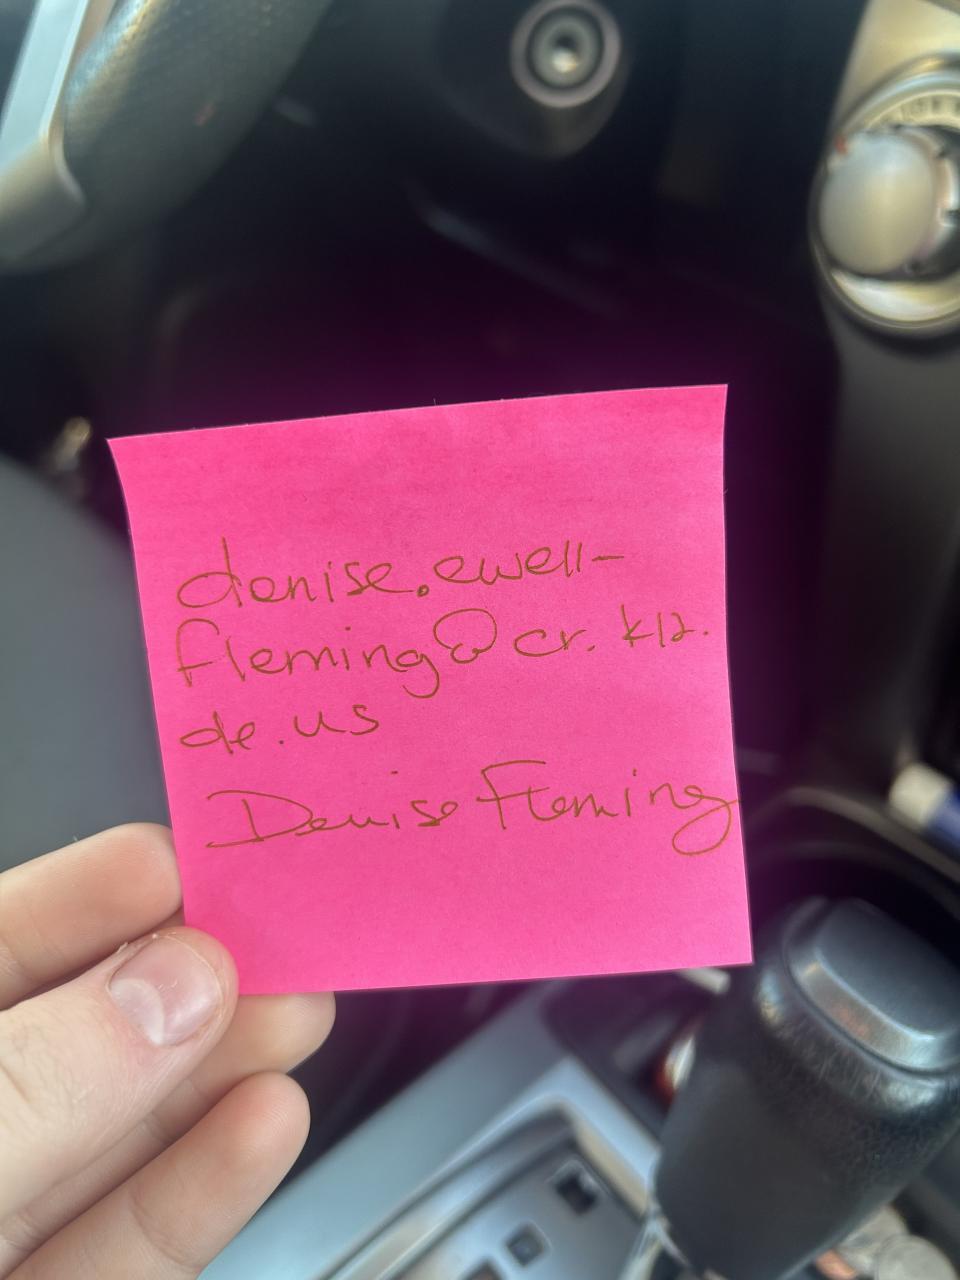 denise.ewell-
fleming@cr.k12.
de.us
Denise Fleming